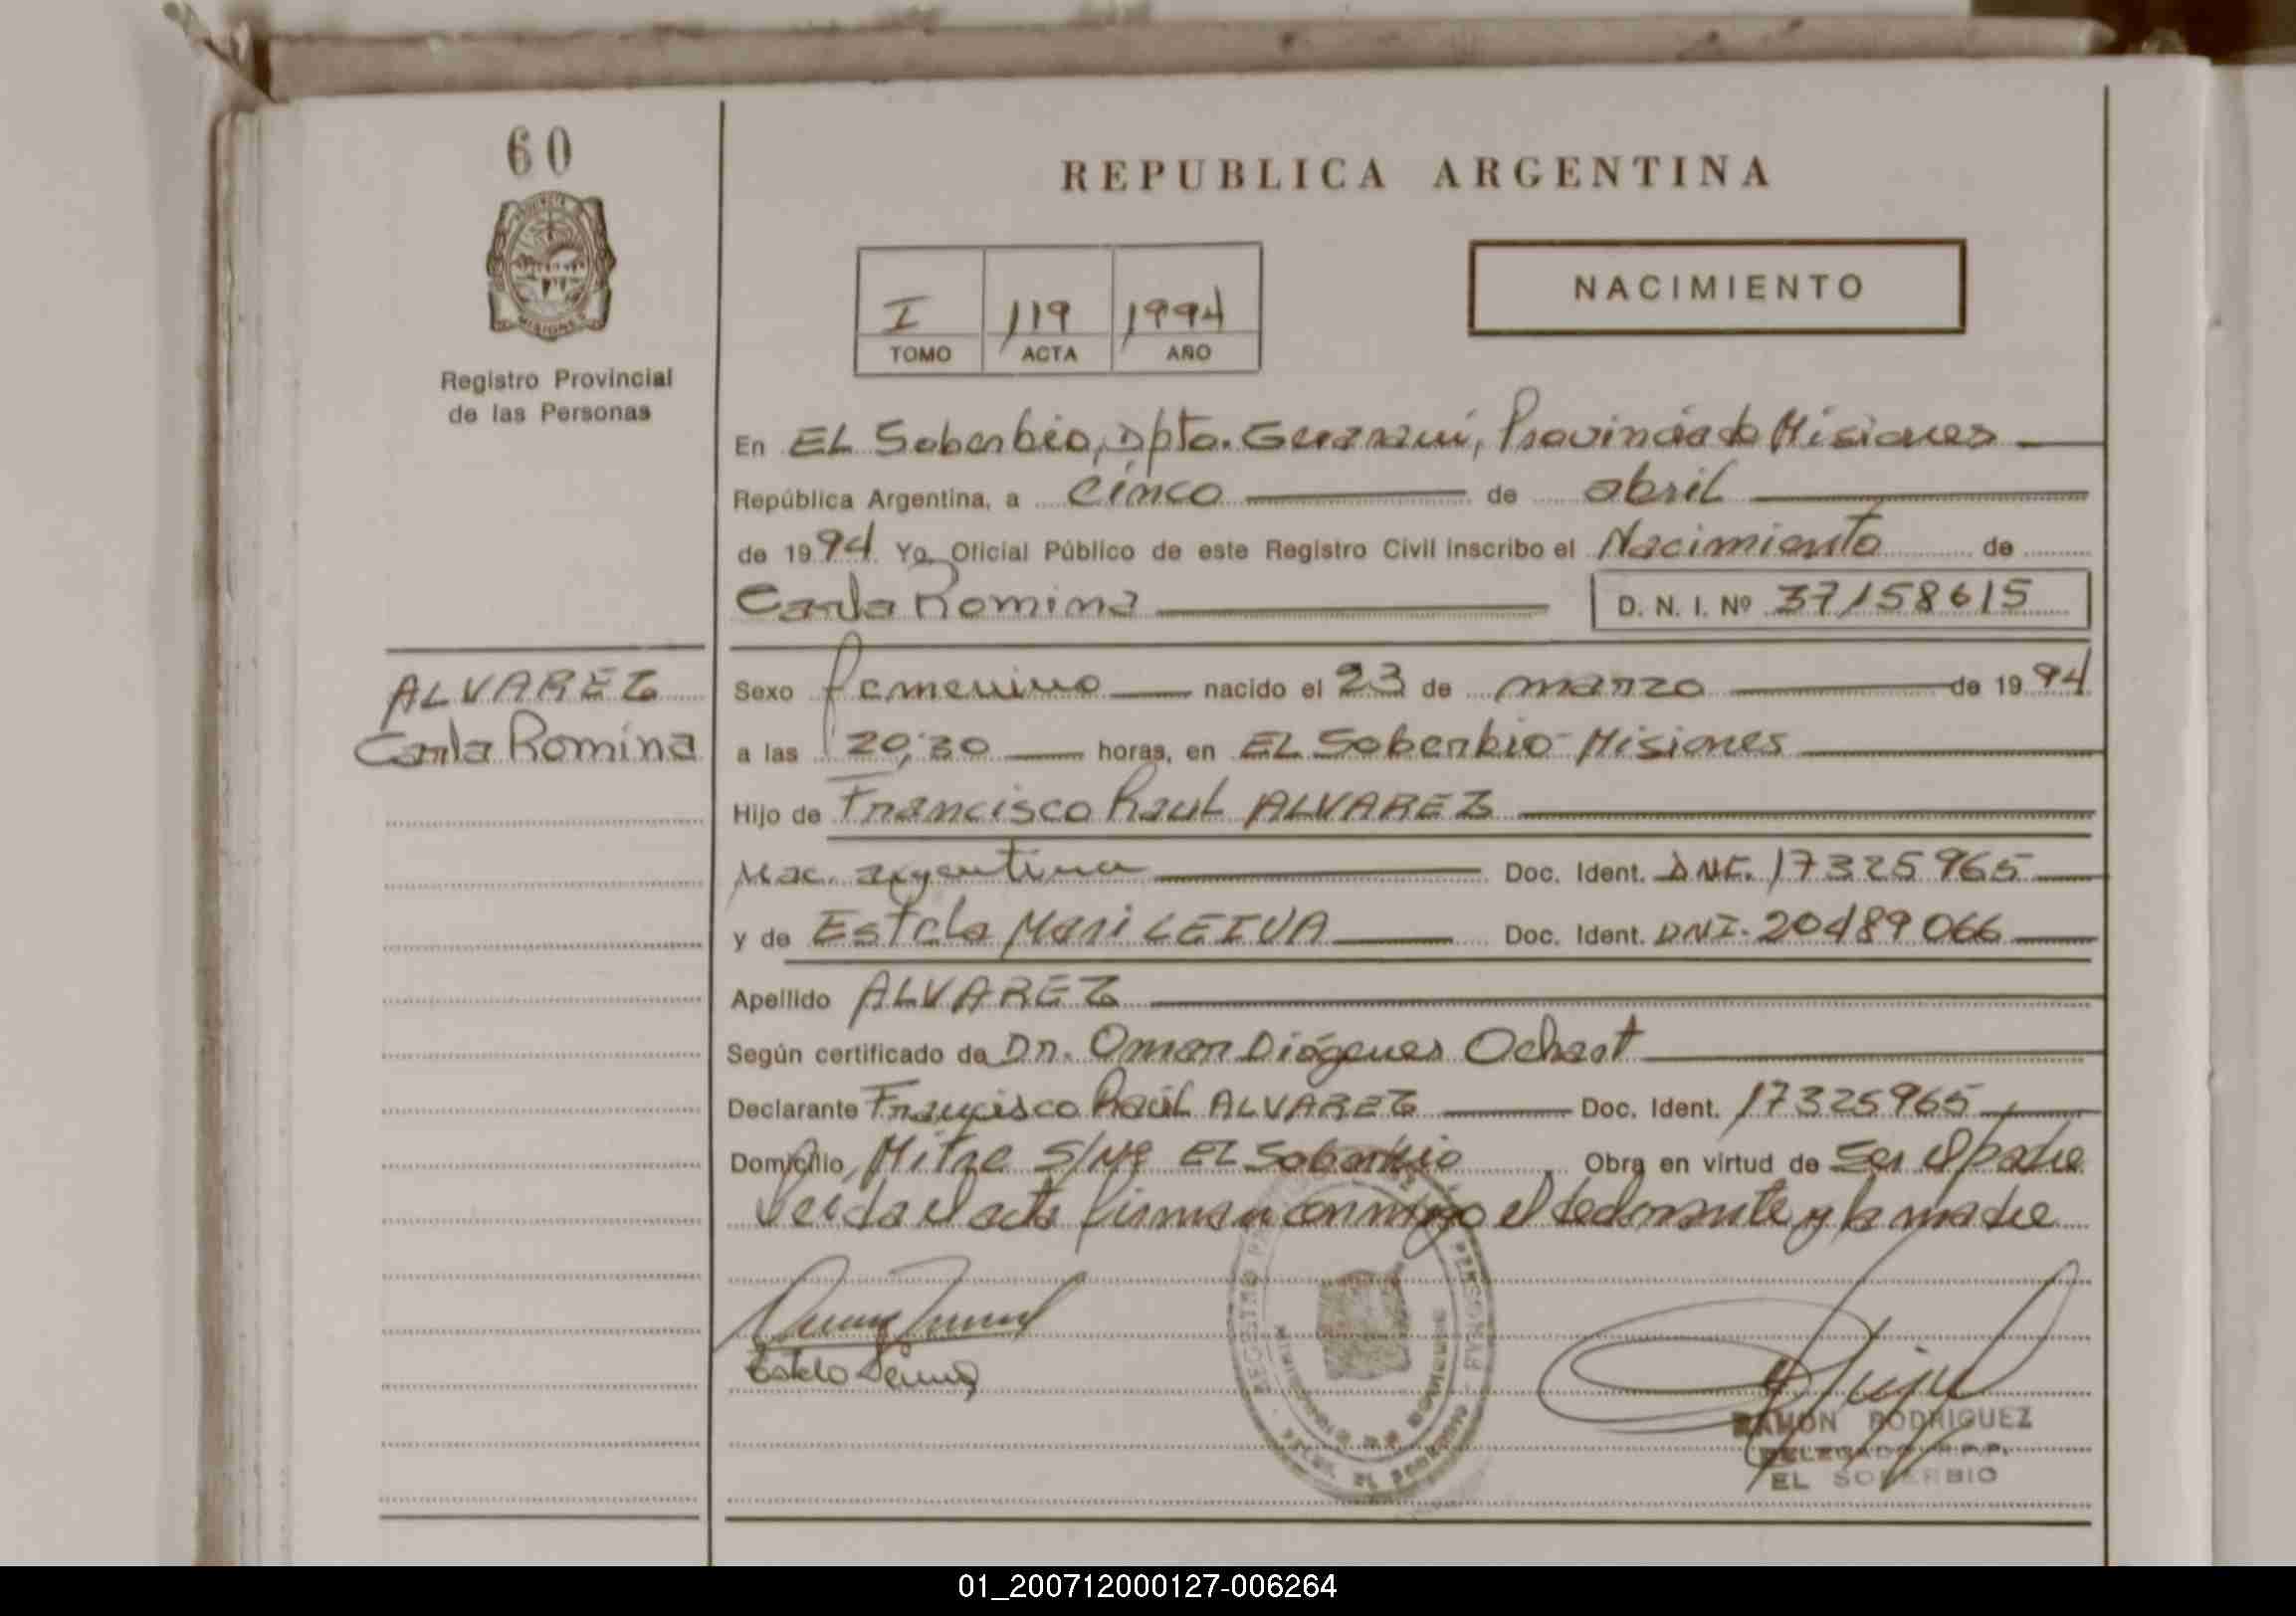 60
PROVINCIA
MISIONES
Registro Provincial
de las Personas
REPUBLICA ARGENTINA
I 119 1994
TOMO ACTA AÑO
NACIMIENTO
En EL Soberbio, Dpto. Guarani, Provincia de Misiones
República Argentina, a cinco de abril
de 1994. Yo, Oficial Público de este Registro Civil inscribo el Nacimiento de
Carla Romina D. N. I. Nº 37158615
ALVAREZ
Carla Romina
Sexo femenino nacido el 23 de marzo de 1994
a las 20,30 horas, en EL Soberbio-Misiones
Hijo de Francisco Raul ALVAREZ
Nac. argentina Doc. Ident. DNI. 17325965
y de Estela Mari LEIVA Doc. Ident. DNI. 20489066
Apellido ALVAREZ
Según certificado de Dr. Omar Diógenes Ochast
Declarante Francisco Raúl ALVAREZ Doc. Ident. 17325965
Domicilio, Mitre S/Nº EL Soberbio Obra en virtud de ser el padre
Leida el acta firman conmigo el declarante y la madre
REGISTRO PERSONAS
MINISTERIO DE GOBIERNO
EL SOBERBIO
Estela
RAMON RODRIGUEZ
DELEGADO R.P.P.
EL SOBERBIO
01_200712000127-006264